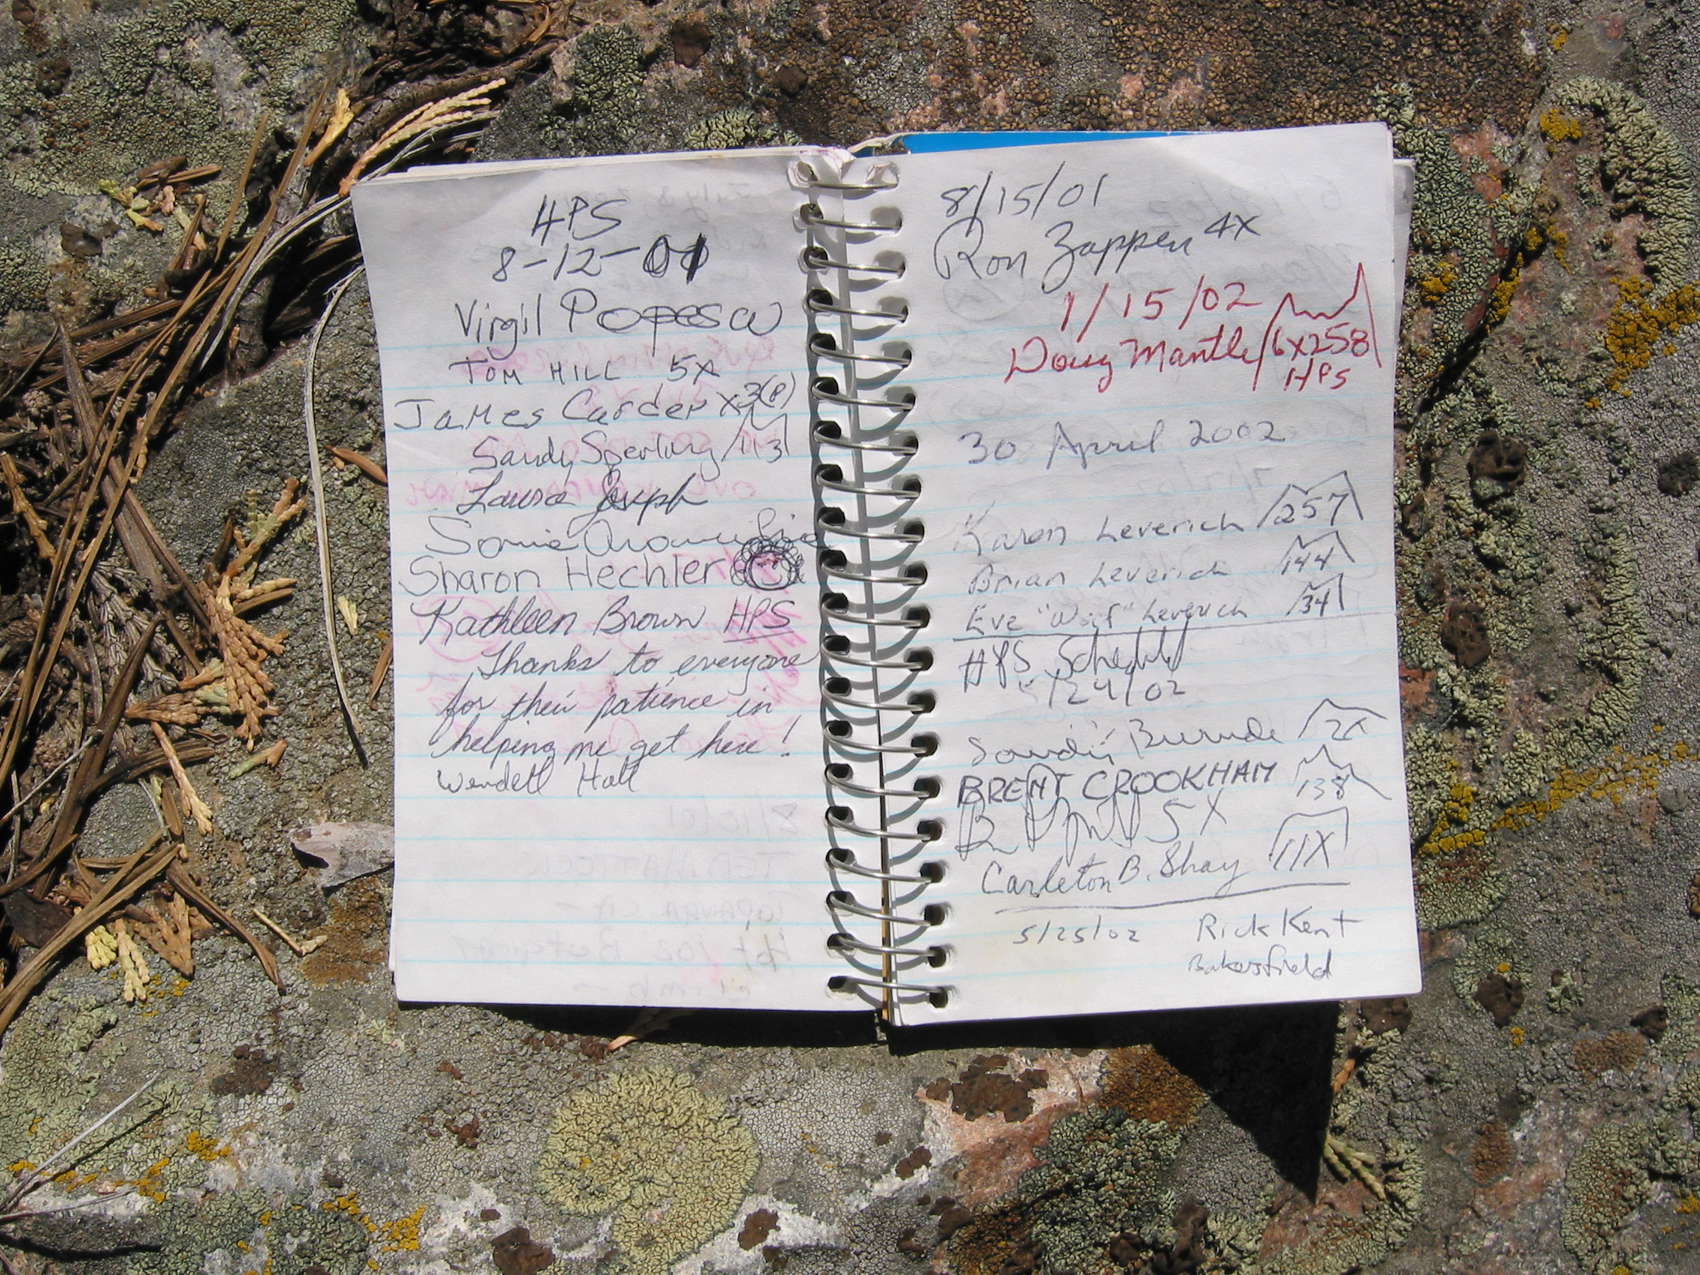 HPS
8-12-01
Virgil Popescu
TOM HILL 5X
James Carder x3(P)
Sandy Sperling 113
Laura Joseph
Sonia
Sharon Hechler
Kathleen Brown HPS
Thanks to everyone
for their patience in
helping me get here!
Wendell Hall
8/15/01
Ron Zappen 4X
1/15/02
Doug Mantle 6X258
HPS
30 April 2002
Karen Leverich 257
Brian Leverich 144
Eve "Wolf" Leverich 34
HPS
5/24/02
2X
BRENT CROOKHAM 138
5X
Carleton B. Shay 11X
5/25/02 Rick Kent
Bakersfield